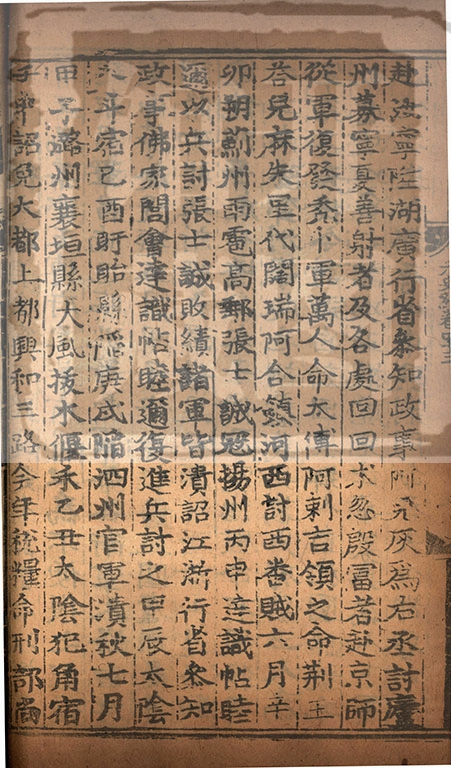 寧陞湖廣行省參知政事阿兒灰爲右丞討廬
州募寧夏善射者及各處回回朮忽殷富者赴京師
從軍復發禿卜軍萬人命太傅阿剌吉領之命荊王
荅兒麻失里代闊瑞阿合鎮河西討西番賊六月辛
卯朔薊州雨雹高郵張士誠冦揚州丙申達識帖睦
邇以兵討張士誠敗績諸軍皆潰詔江浙行省參知
政事佛家閭會達識帖睦邇復進兵討之甲辰太陰
入斗宿己酉盱眙縣陷庚戌陷泗州官軍潰秋七月
甲子潞州襄垣縣大風拔木偃禾乙丑太陰犯角宿
詔免大都上都興和三路今年稅糧命刑部尚